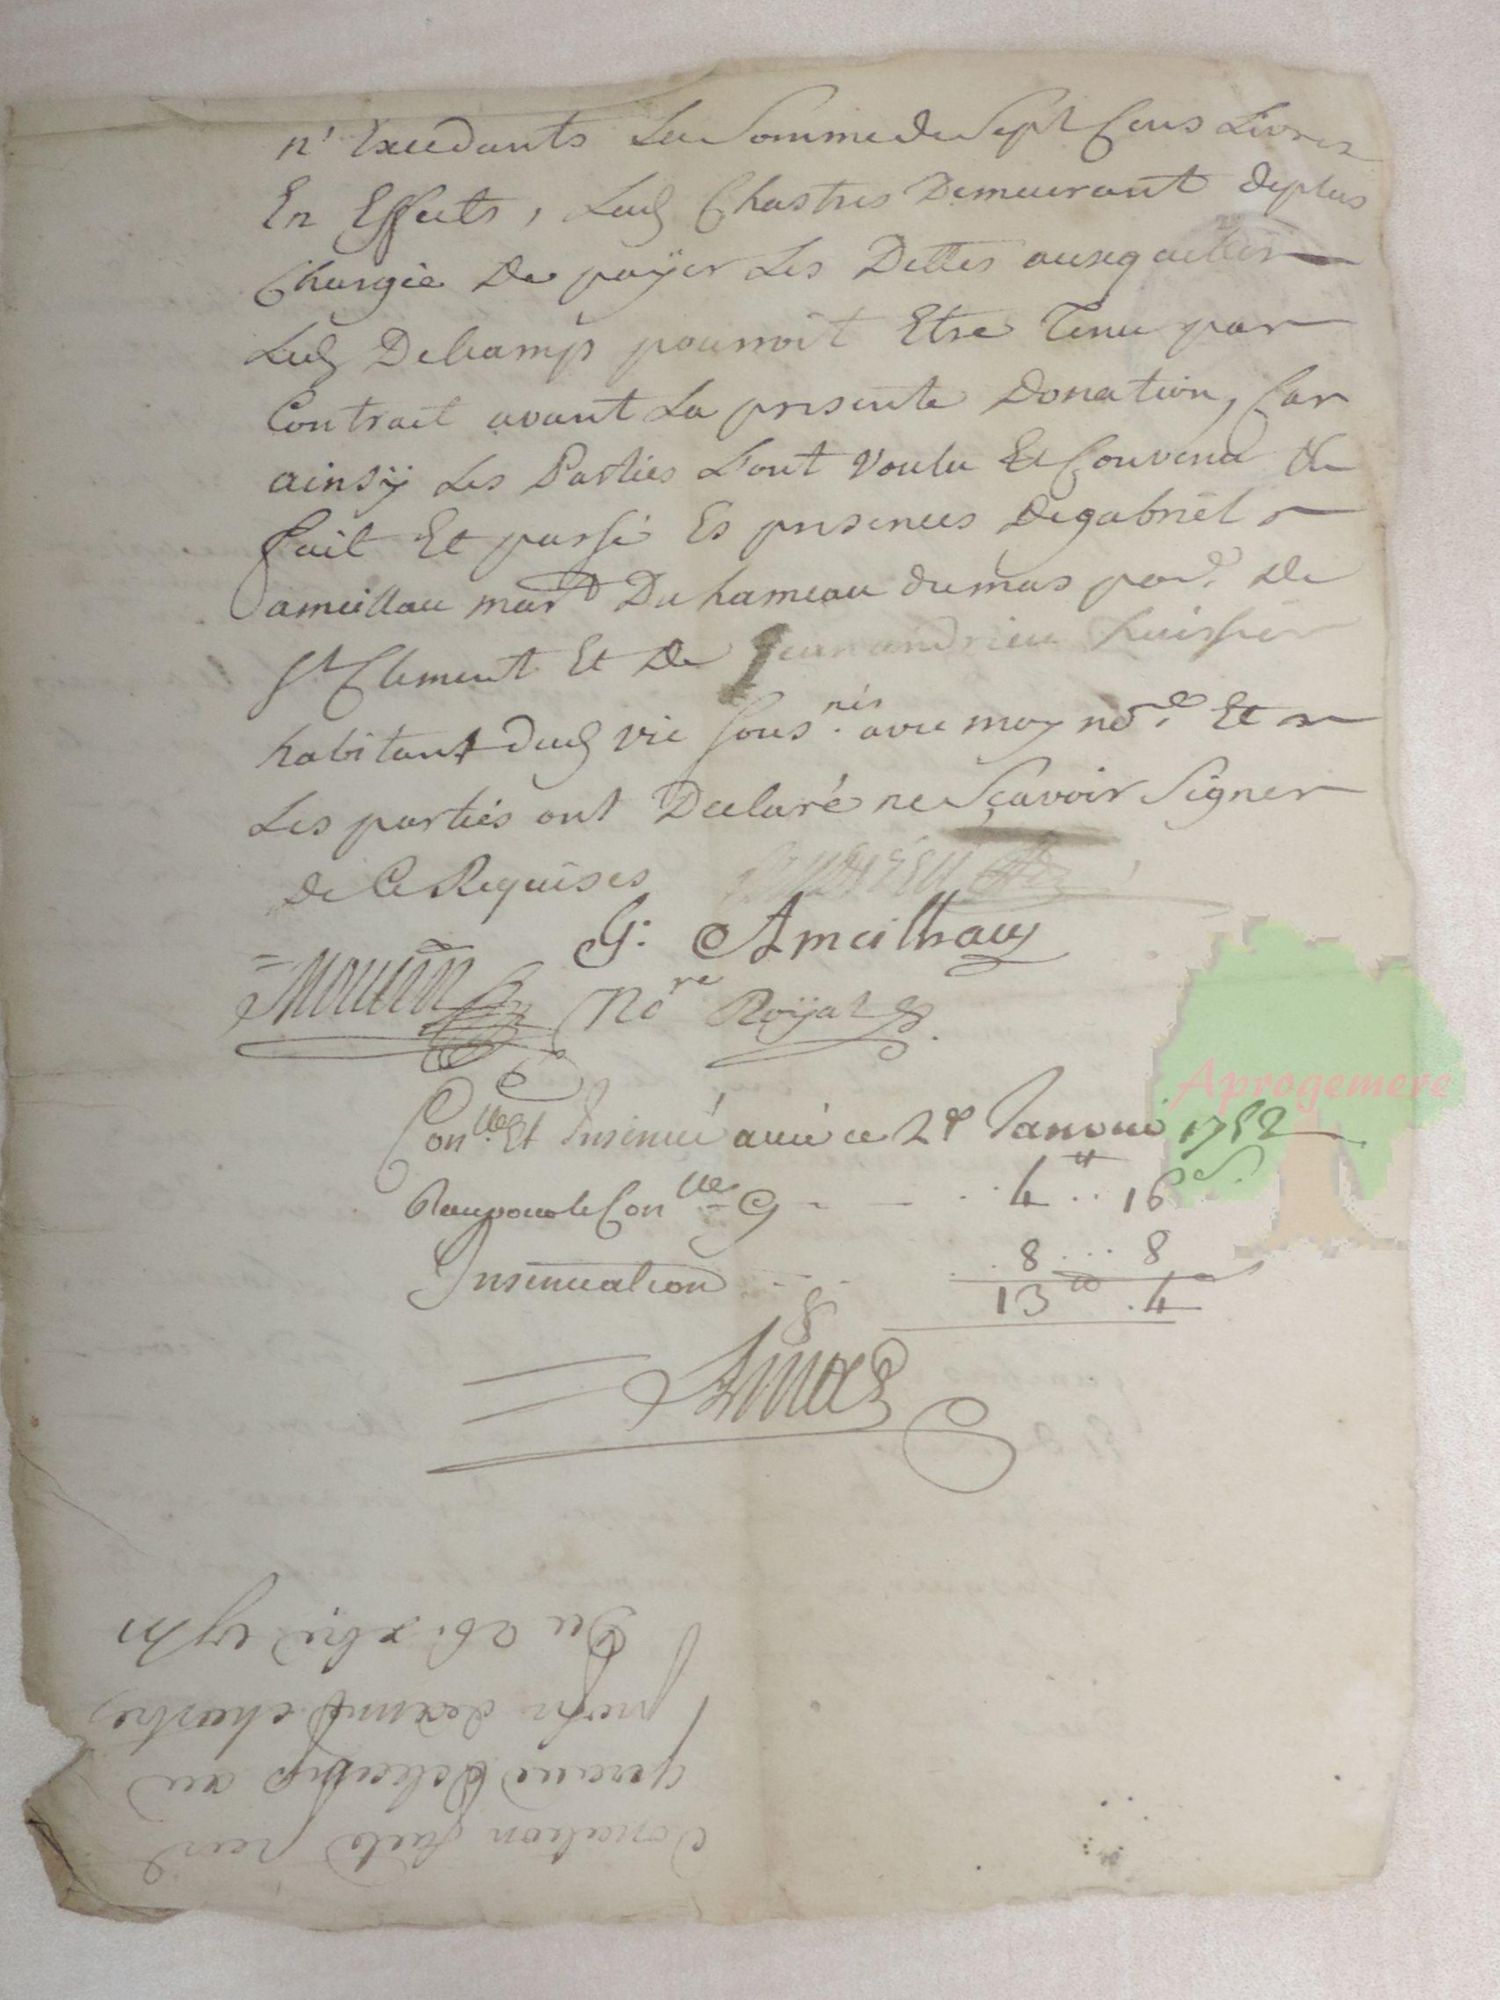 n'Excedants La Somme de Sept Cens Livres
En Effects, Led Chastres Demeurant deplus
Chargée De payer Les Dettes ausquelles
Led Delcamp pourroit Etre Tenu par
Contrait avant La presente Donation, Car
ainsÿ Les Parties L'ont Voulu Et Convenu
fait Et passé Es presences De gabriel
ameillau mar.d Du hameau dumas par.e De
St Clement Et De Jean andrieu huissier
habitant dud vic sous.nés avec moy no.re Et
Les parties ont Declaré ne Scavoir Signer
De Ce Requises
Andrieu
G: Ameilhau
Mourin No.re Royal
Con.lle Et Insinué a ce 2e Janvier 1752
Reçu pour le Con.lle 4 16
Insinuation 8 8
13 4
Du 26 xbre 1751
Donation faite par
Delcamp au
chastres
Aprogemere